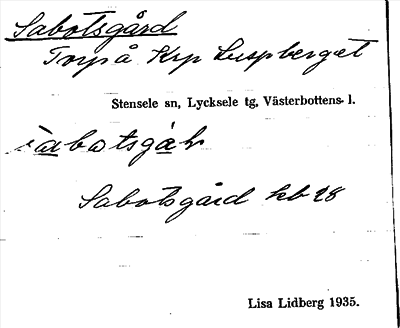 Sabotsgård
Torp å Krp Luspberget
Stensele sn, Lycksele tg, Västerbottens l.
Sabotsgård kb 28
Lisa Lidberg 1935.